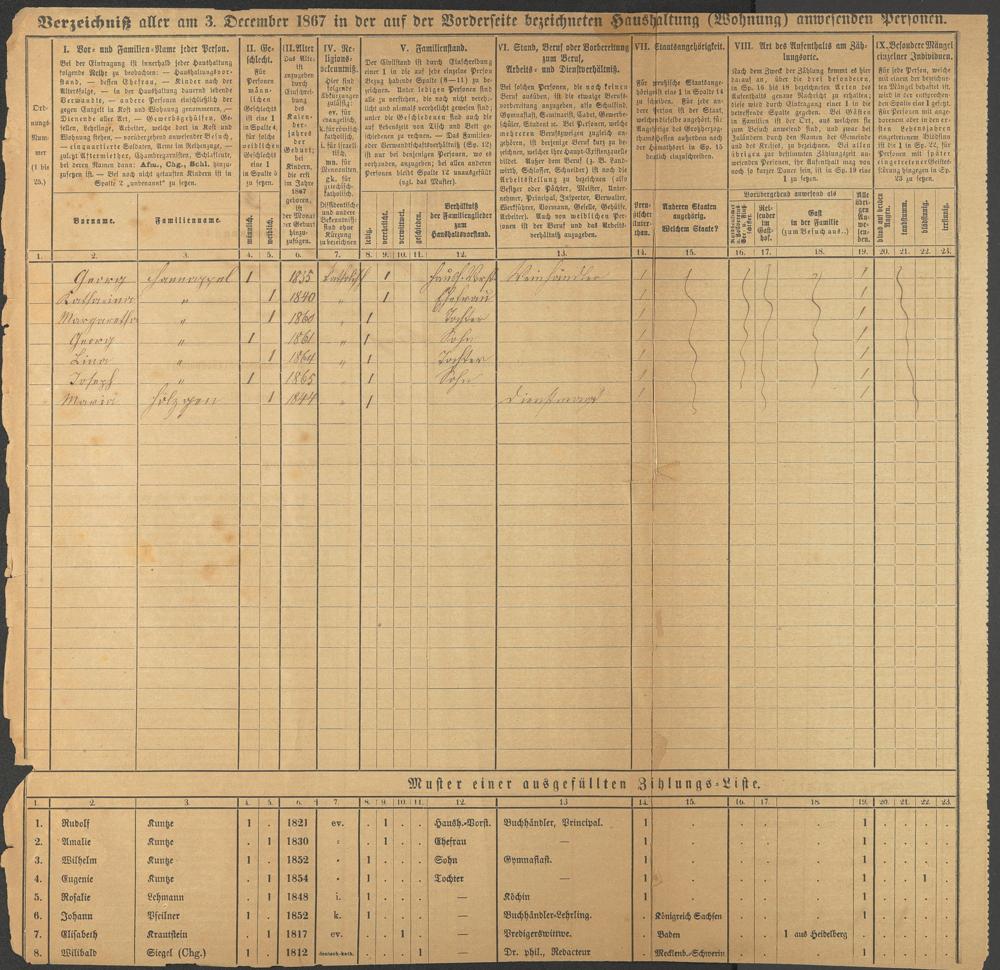 Verzeichniß aller am 3. December 1867 in der auf der Vorderseite bezeichneten Haushaltung (Wohnung) anwesenden Personen.
Ord-
nungs-
Num-
mer
(1 bis
25.)
I. Vor- und Familien-Name jeder Person.
Bei der Eintragung ist innerhalb jeder Haushaltung
folgende Reihe zu beobachten: — Haushaltungsvor-
stand, — dessen Ehefrau, — Kinder nach der
Altersfolge, — in der Haushaltung dauernd lebende
Verwandte, — andere Personen einschließlich der
gegen Entgelt in Kost und Wohnung genommenen, —
Dienende aller Art, — Gewerbsgehülfen, Ge-
sellen, Lehrlinge, Arbeiter, welche dort in Kost und
Wohnung stehen, — vorübergehend anwesender Besuch,
— einquartierte Soldaten, Arme im Reihenzuge, —
zuletzt Aftermiether, Chambregarnisten, Schlafleute,
bei deren Namen dann: Afm., Chg., Schl. hinzu-
zusetzen ist. — Bei noch nicht getauften Kindern ist in
Spalte 2 „unbenannt“ zu setzen.
Vorname.
Familienname.
II. Ge-
schlecht.
Für
Personen
männ-
lichen
Geschlechts
ist eine 1
in Spalte 4
für solche
weiblichen
Geschlechts
eine 1
in Spalte 5
zu setzen.
männlich.
weiblich.
III. Alter
Das Alte-
ist
anzugeben
durch
Einschrei-
bung
des
Kalen-
der-
jahres
der
Geburt;
bei
Kindern,
die erst
im Jahre
1867
geboren,
ist
der Monat
der Geburt
hinzu-
zufügen.
IV. Re-
ligions-
bekenntniß.
Hier sind
folgende
Abkürzungen
zulässig:
ev. für
evangelisch,
k. für römisch
katholisch,
i. für israeli-
tisch,
mn. für
Mennoniten,
gk. für
griechisch-
katholisch.
Dissidentische
und andere
Bekenntniß
sind ohne
Kürzung
zu bezeichnen
V. Familienstand.
Der Civilstand ist durch Einschreibung
einer 1 in die auf jede einzelne Person
Bezug habende Spalte (8—11) zu be-
zeichnen. Unter ledigen Personen sind
alle zu verstehen, die noch nicht verehe-
licht und niemals verehelicht gewesen sind;
unter die Geschiedenen sind auch die
auf Lebenszeit von Tisch und Bett ge-
schiedenen zu rechnen. — Das Familien-
oder Verwandtschaftsverhältniß (Sp. 12)
ist nur bei denjenigen Personen, wo es
vorhanden, anzugeben; bei allen anderen
Personen bleibt Spalte 12 unausgefüllt
(vgl. das Muster).
ledig.
verehelicht.
verwittwet.
geschieden.
Verhältniß
der Familienglieder
zum
Haushaltsvorstand.
VI. Stand, Beruf oder Vorbereitung
zum Beruf,
Arbeits- und Dienstverhältniß.
Bei solchen Personen, die noch keinen
Beruf ausüben, ist die etwaige Berufs-
vorbereitung anzugeben, also Schulkind,
Gymnasiast, Seminarist, Cadet, Gewerbe-
schüler, Student ꝛc. Bei Personen, welche
mehreren Berufszweigen zugleich an-
gehören, ist derjenige Beruf zu bezeich-
nen, welcher ihre Haupt-Existenzquelle
bildet. Außer dem Beruf (z. B. Land-
wirth, Schlosser, Schneider) ist noch die
Arbeitsstellung zu bezeichnen (also
Besitzer oder Pächter, Meister, Unter-
nehmer, Principal, Inspector, Verwalter,
Werkführer, Vormann, Geselle, Gehülfe,
Arbeiter). Auch von weiblichen Per-
sonen ist der Beruf und das Arbeits-
verhältniß anzugeben.
VII. Staatsangehörigkeit.
Für preußische Staatsange-
hörigkeit eine 1 in Spalte 14
zu schreiben. Für jede an-
dere Person ist der Staat,
welchem dieselbe angehört, für
Angehörige des Großherzog-
thums Hessen außerdem noch
der Heimathsort in Sp. 15
deutlich einzuschreiben.
Preu-
ßischer
Unter-
than.
Anderen Staaten
angehörig.
Welchem Staate?
VIII. Art des Aufenthalts am Zäh-
lungsorte.
Nach dem Zweck der Zählung kommt es hier
darauf an, über die drei besonderen, in
Sp. 16 bis 18 bezeichneten Arten des
Aufenthalts genaue Nachricht zu erhalten;
dies wird durch Eintragung einer 1 in die
betreffende Spalte gegeben. Bei Gästen
in Familien ist der Ort, aus welchem sie
zum Besuch anwesend sind, und zwar bei
Inländern durch den Namen der Gemeinde
und des Kreises, zu bezeichnen. Bei allen
übrigen zur bestimmten Zählungszeit an-
wesenden Personen, ihr Aufenthalt mag von
noch so kurzer Dauer sein, ist in Sp. 19 eine
1 zu setzen.
Vorübergehend anwesend als
Rei-
sender
im
Gast-
hof.
Gast
in der Familie
(zum Besuch aus..)
Alle
übri-
gen
An-
we-
sen-
den.
IX. Besondere Mängel
einzelner Individuen.
Für jede Person, welche
mit einem der bezeichne-
ten Mängel behaftet ist,
wird in der entsprechen-
den Spalte eine 1 gesetzt.
Für Personen mit ange-
borenem oder in den er-
sten Lebensjahren
eingetretenem Blödsinn
ist die 1 in Sp. 22, für
Personen mit später
eingetretener Geistes-
störung hingegen in Sp.
23 zu setzen.
blind auf beiden
Augen.
taubstumm.
blödsinnig.
irrsinnig.
1. 2. 3. 4. 5. 6. 7. 8. 9. 10. 11. 12. 13. 14. 15. 16. 17. 18. 19. 20. 21. 22. 23.
Georg Hannappel 1 1835 katholisch 1 Haush.-Vorst. Weinhändler 1 1
Katharina " 1 1840 " 1 Ehefrau 1 1
Margaretha " 1 1860 " 1 Tochter 1 1
Georg " 1 1861 " 1 Sohn 1 1
Lina " 1 1864 " 1 Tochter 1 1
Joseph " 1 1865 " 1 Sohn 1 1
Maria 1 1844 " 1 Dienstmagd 1 1
Muster einer ausgefüllten Zählungs-Liste.
1. 2. 3. 4. 5. 6. 7. 8. 9. 10. 11. 12. 13 14. 15. 16. 17. 18 19. 20. 21. 22. 23.
1. Rudolf Kuntze 1 . 1821 ev. . 1 . . Haush.-Vorst. Buchhändler, Principal. 1 . . . . 1 . . . .
2. Amalie Kuntze . 1 1830 " . 1 . . Ehefrau — 1 . . . . 1 . . . .
3. Wilhelm Kuntze 1 . 1852 " 1 . . . Sohn Gymnasiast. 1 . . . . 1 . . . .
4. Eugenie Kuntze . 1 1854 " 1 . . . Tochter — 1 . . . . 1 . . 1 .
5. Rosalie Lehmann . 1 1848 i. 1 . . . — Köchin 1 . . . . 1 . . . .
6. Johann Pfeilner 1 . 1852 k. 1 . . . — Buchhändler-Lehrling. . Königreich Sachsen . . . 1 . . . .
7. Elisabeth Krautstein . 1 1817 ev. . . 1 . — Predigerswittwe. . Baden . . 1 aus Heidelberg . . . . .
8. Wilibald Siegel (Chg.) 1 . 1812 deutsch-kath. . . . 1 — Dr. phil., Redacteur . Mecklenb.-Schwerin . . . 1 . . . .